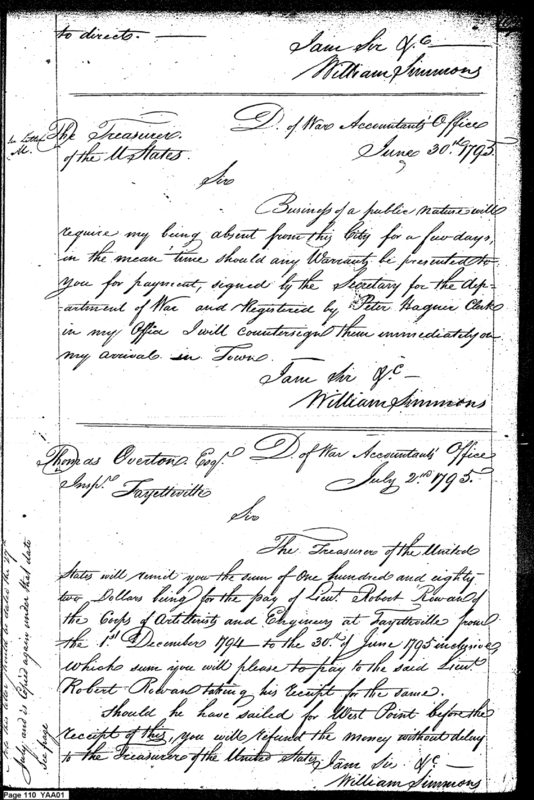 to directs.
I am Sir &c
William Simmons
The Treasurer
of the UStates.
D. of War Accountants' Office
June 30th 1795.
Sir
Business of a public nature will
require my being absent from this City for a few days,
in the mean time should any Warrants be presented to
you for payment, signed by the Secretary for the dep-
artment of War and Registered by Peter Hagner Clerk
in my Office I will countersign them immediately on
my arrival in Town.
I am Sir &c
William Simmons
Thomas Overton Esqr.
Inspr. Fayettville
D. of War Accountants' Office
July 2nd 1795.
Sir
The Treasurer of the United
States will remit you the sum of One hundred and eighty-
two Dollars being for the pay of Lieut Robert Rowan of
the Corps of Artillerists and Engineers at Fayettville from
the 1st December 1794 to the 30th of June 1795 inclusive,
which sum you will please to pay to the said Lieut.
Robert Rowan taking his receipt for the same.
Should he have sailed for West Point before the
receipt of this, you will refund the money without delay
to the Treasurer of the United States
I am Sir &c
William Simmons
this letter should be dated the
July and is copied again under that date
See page
Page 110 YAA01